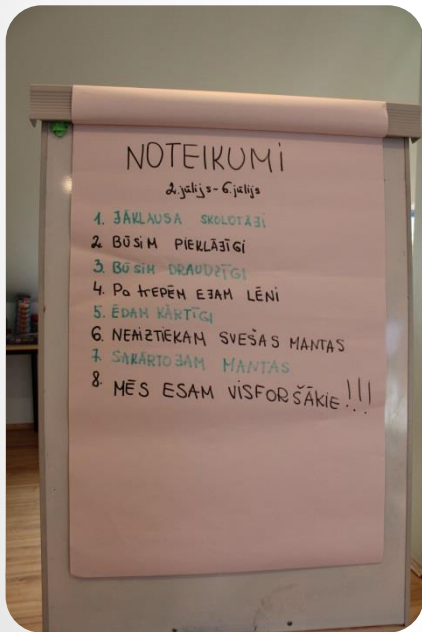 NOTEIKUMI
2.jūlijs - 6.jūlijs
1. JĀKLAUSA SKOLOTĀJI
2. BŪSIM PIEKLĀJĪGI
3. BŪSIM DRAUDZĪGI
4. Pa trepēm EJAM LĒNI
5. ĒDAM KĀRTĪGI
6. NEAIZTIEKAM SVEŠAS MANTAS
7. SAKĀRTOJAM MANTAS
8. MĒS ESAM VISFORŠĀKIE!!!